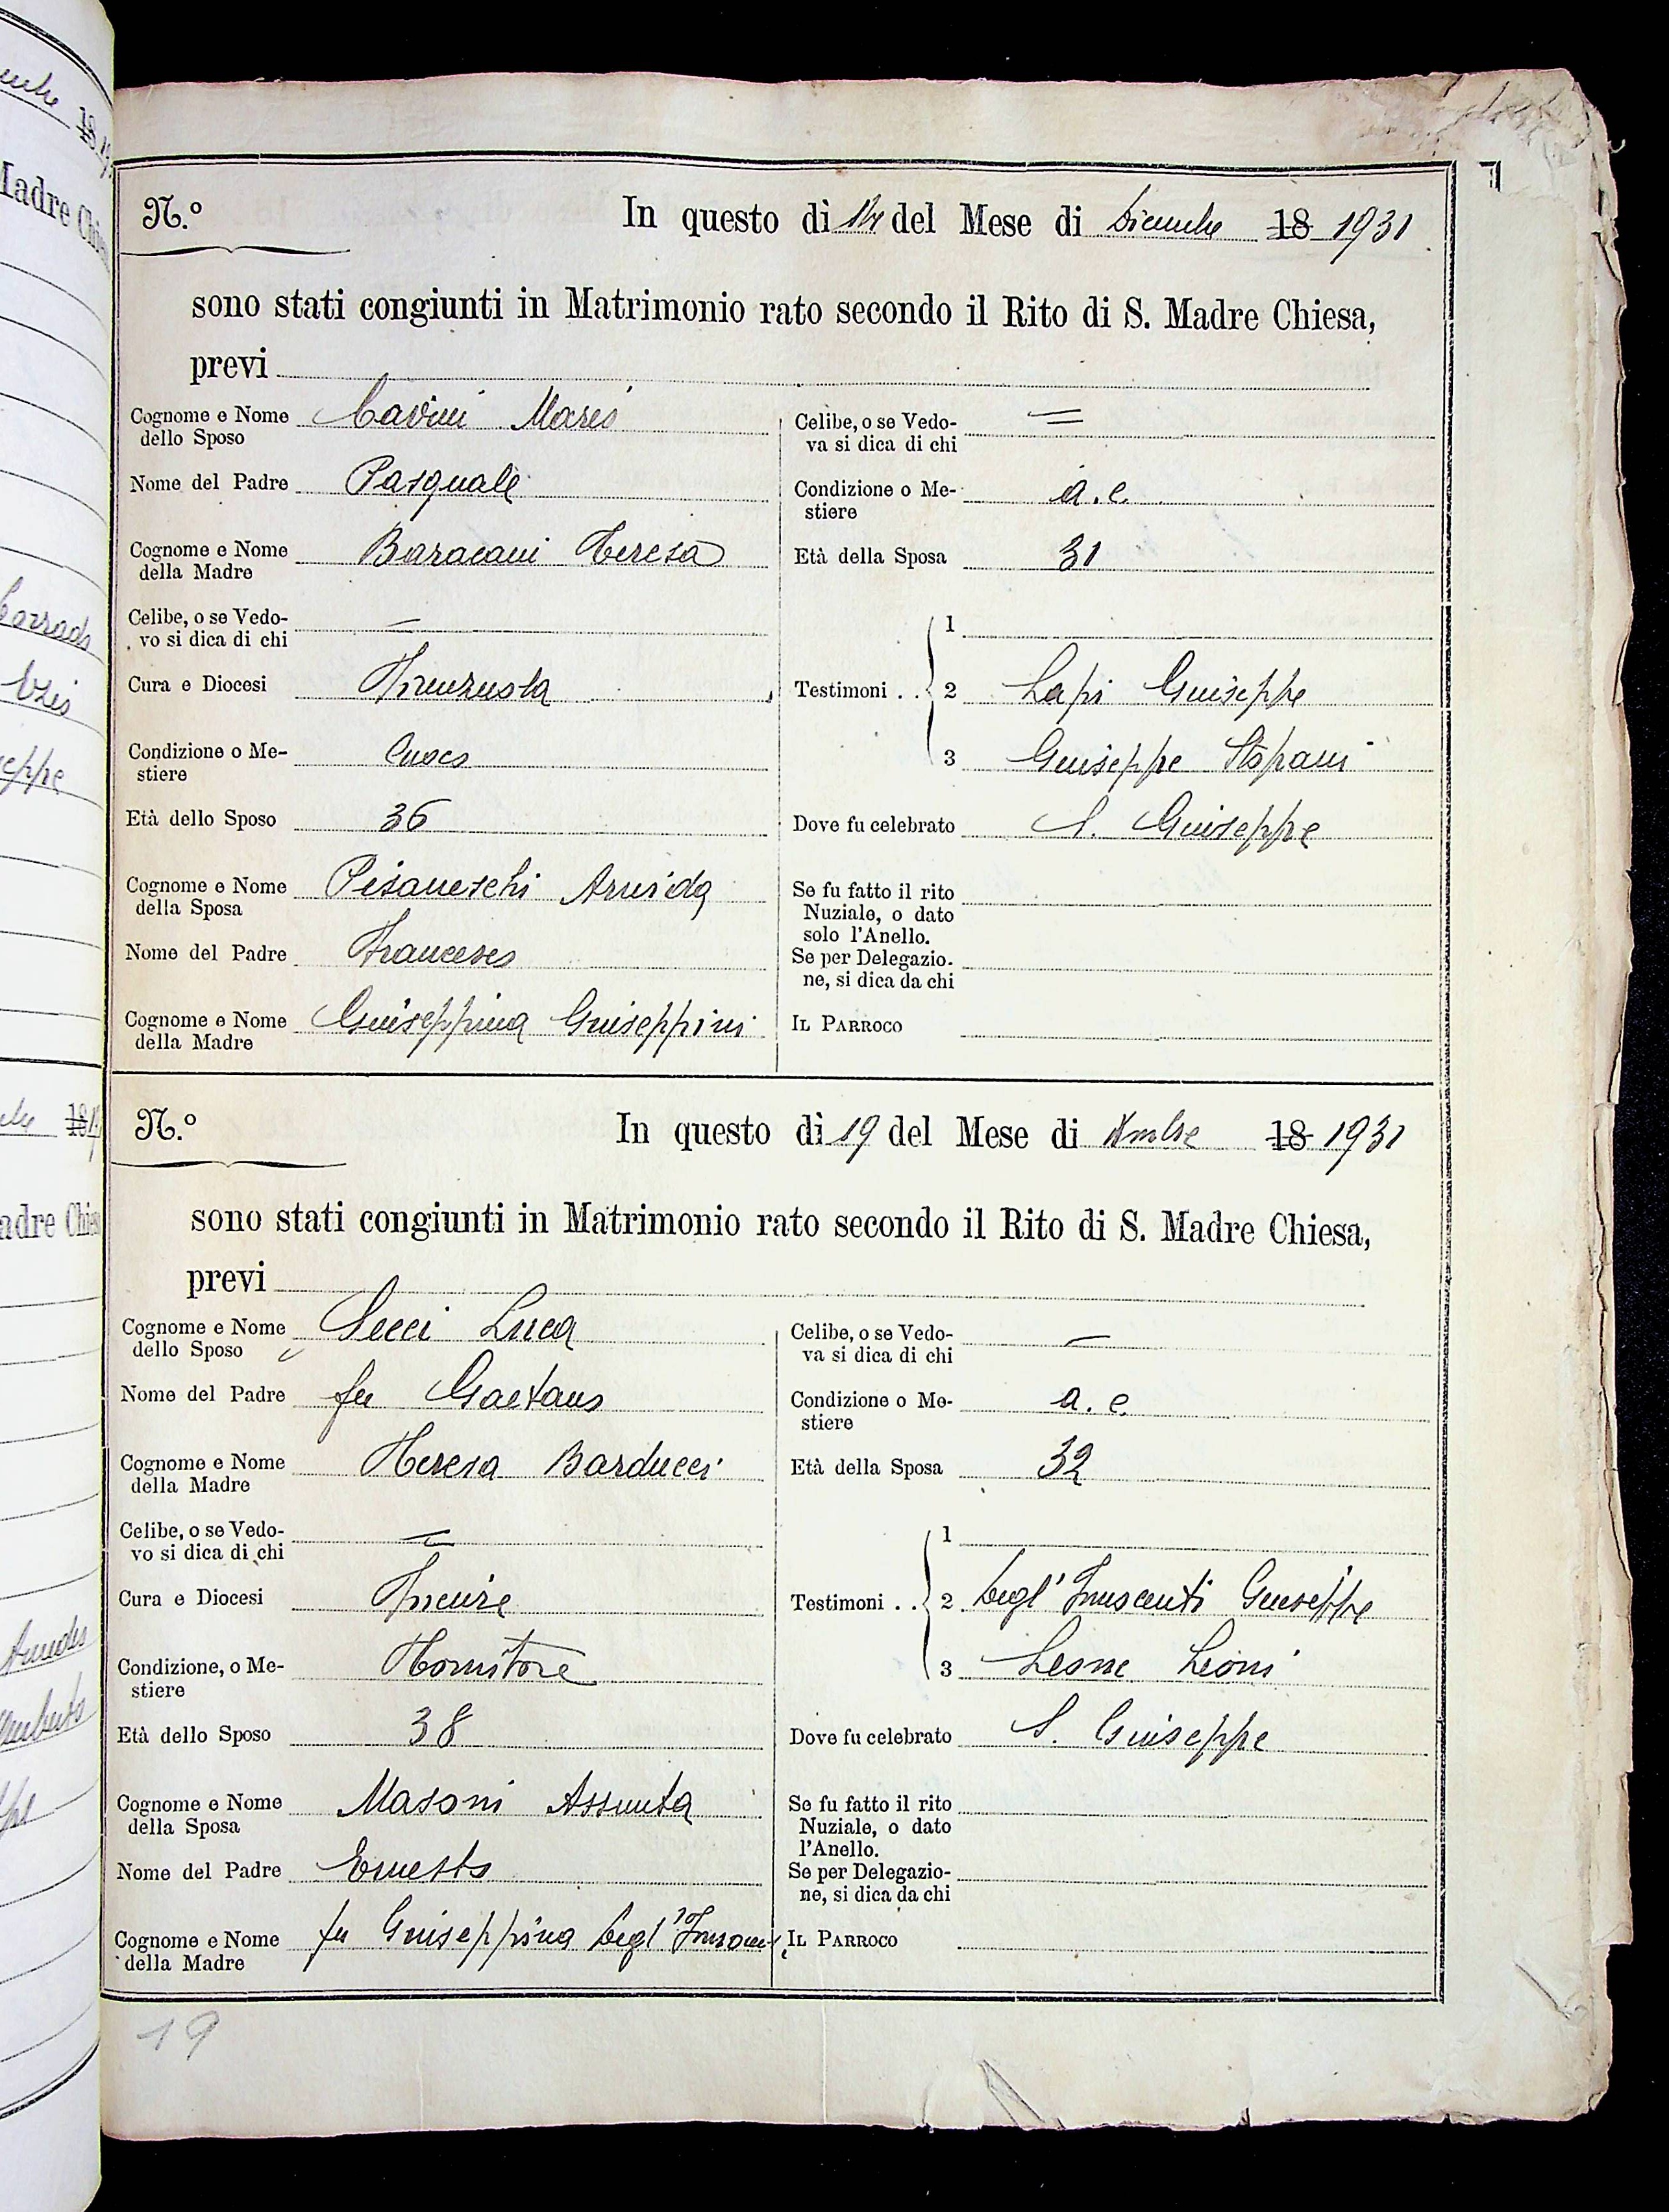 N.º In questo dì 14 del Mese di Dicembre 18 1931
sono stati congiunti in Matrimonio rato secondo il Rito di S. Madre Chiesa,
previ
Cognome e Nome dello Sposo Cavini Mario
Nome del Padre Pasquale
Cognome e Nome della Madre Baracani Teresa
Celibe, o se Vedovo si dica di chi —
Cura e Diocesi Firenzuola
Condizione o Mestiere Cuoco
Età dello Sposo 36
Cognome e Nome della Sposa Pisaneschi Armida
Nome del Padre Francesco
Cognome e Nome della Madre Giuseppina Giuseppini
Celibe, o se Vedova si dica di chi =
Condizione o Mestiere a. c.
Età della Sposa 31
Testimoni . . 1
2 Lapi Giuseppe
3 Giuseppe Stopani
Dove fu celebrato S. Giuseppe
Se fu fatto il rito Nuziale, o dato solo l'Anello.
Se per Delegazione, si dica da chi
IL PARROCO
N.º In questo dì 19 del Mese di Xmbre 18 1931
sono stati congiunti in Matrimonio rato secondo il Rito di S. Madre Chiesa,
previ
Cognome e Nome dello Sposo Secci Luca
Nome del Padre fu Gaetano
Cognome e Nome della Madre Teresa Barducci
Celibe, o se Vedovo si dica di chi =
Cura e Diocesi Firenze
Condizione, o Mestiere Tornitore
Età dello Sposo 38
Cognome e Nome della Sposa Masoni Assunta
Nome del Padre Ernesto
Cognome e Nome della Madre fu Giuseppina Degl'Innocenti
Celibe, o se Vedova si dica di chi —
Condizione o Mestiere a. c.
Età della Sposa 32
Testimoni . . 1
2 Degl'Innocenti Giuseppe
3 Leone Leoni
Dove fu celebrato S. Giuseppe
Se fu fatto il rito Nuziale, o dato l'Anello.
Se per Delegazione, si dica da chi
IL PARROCO
19